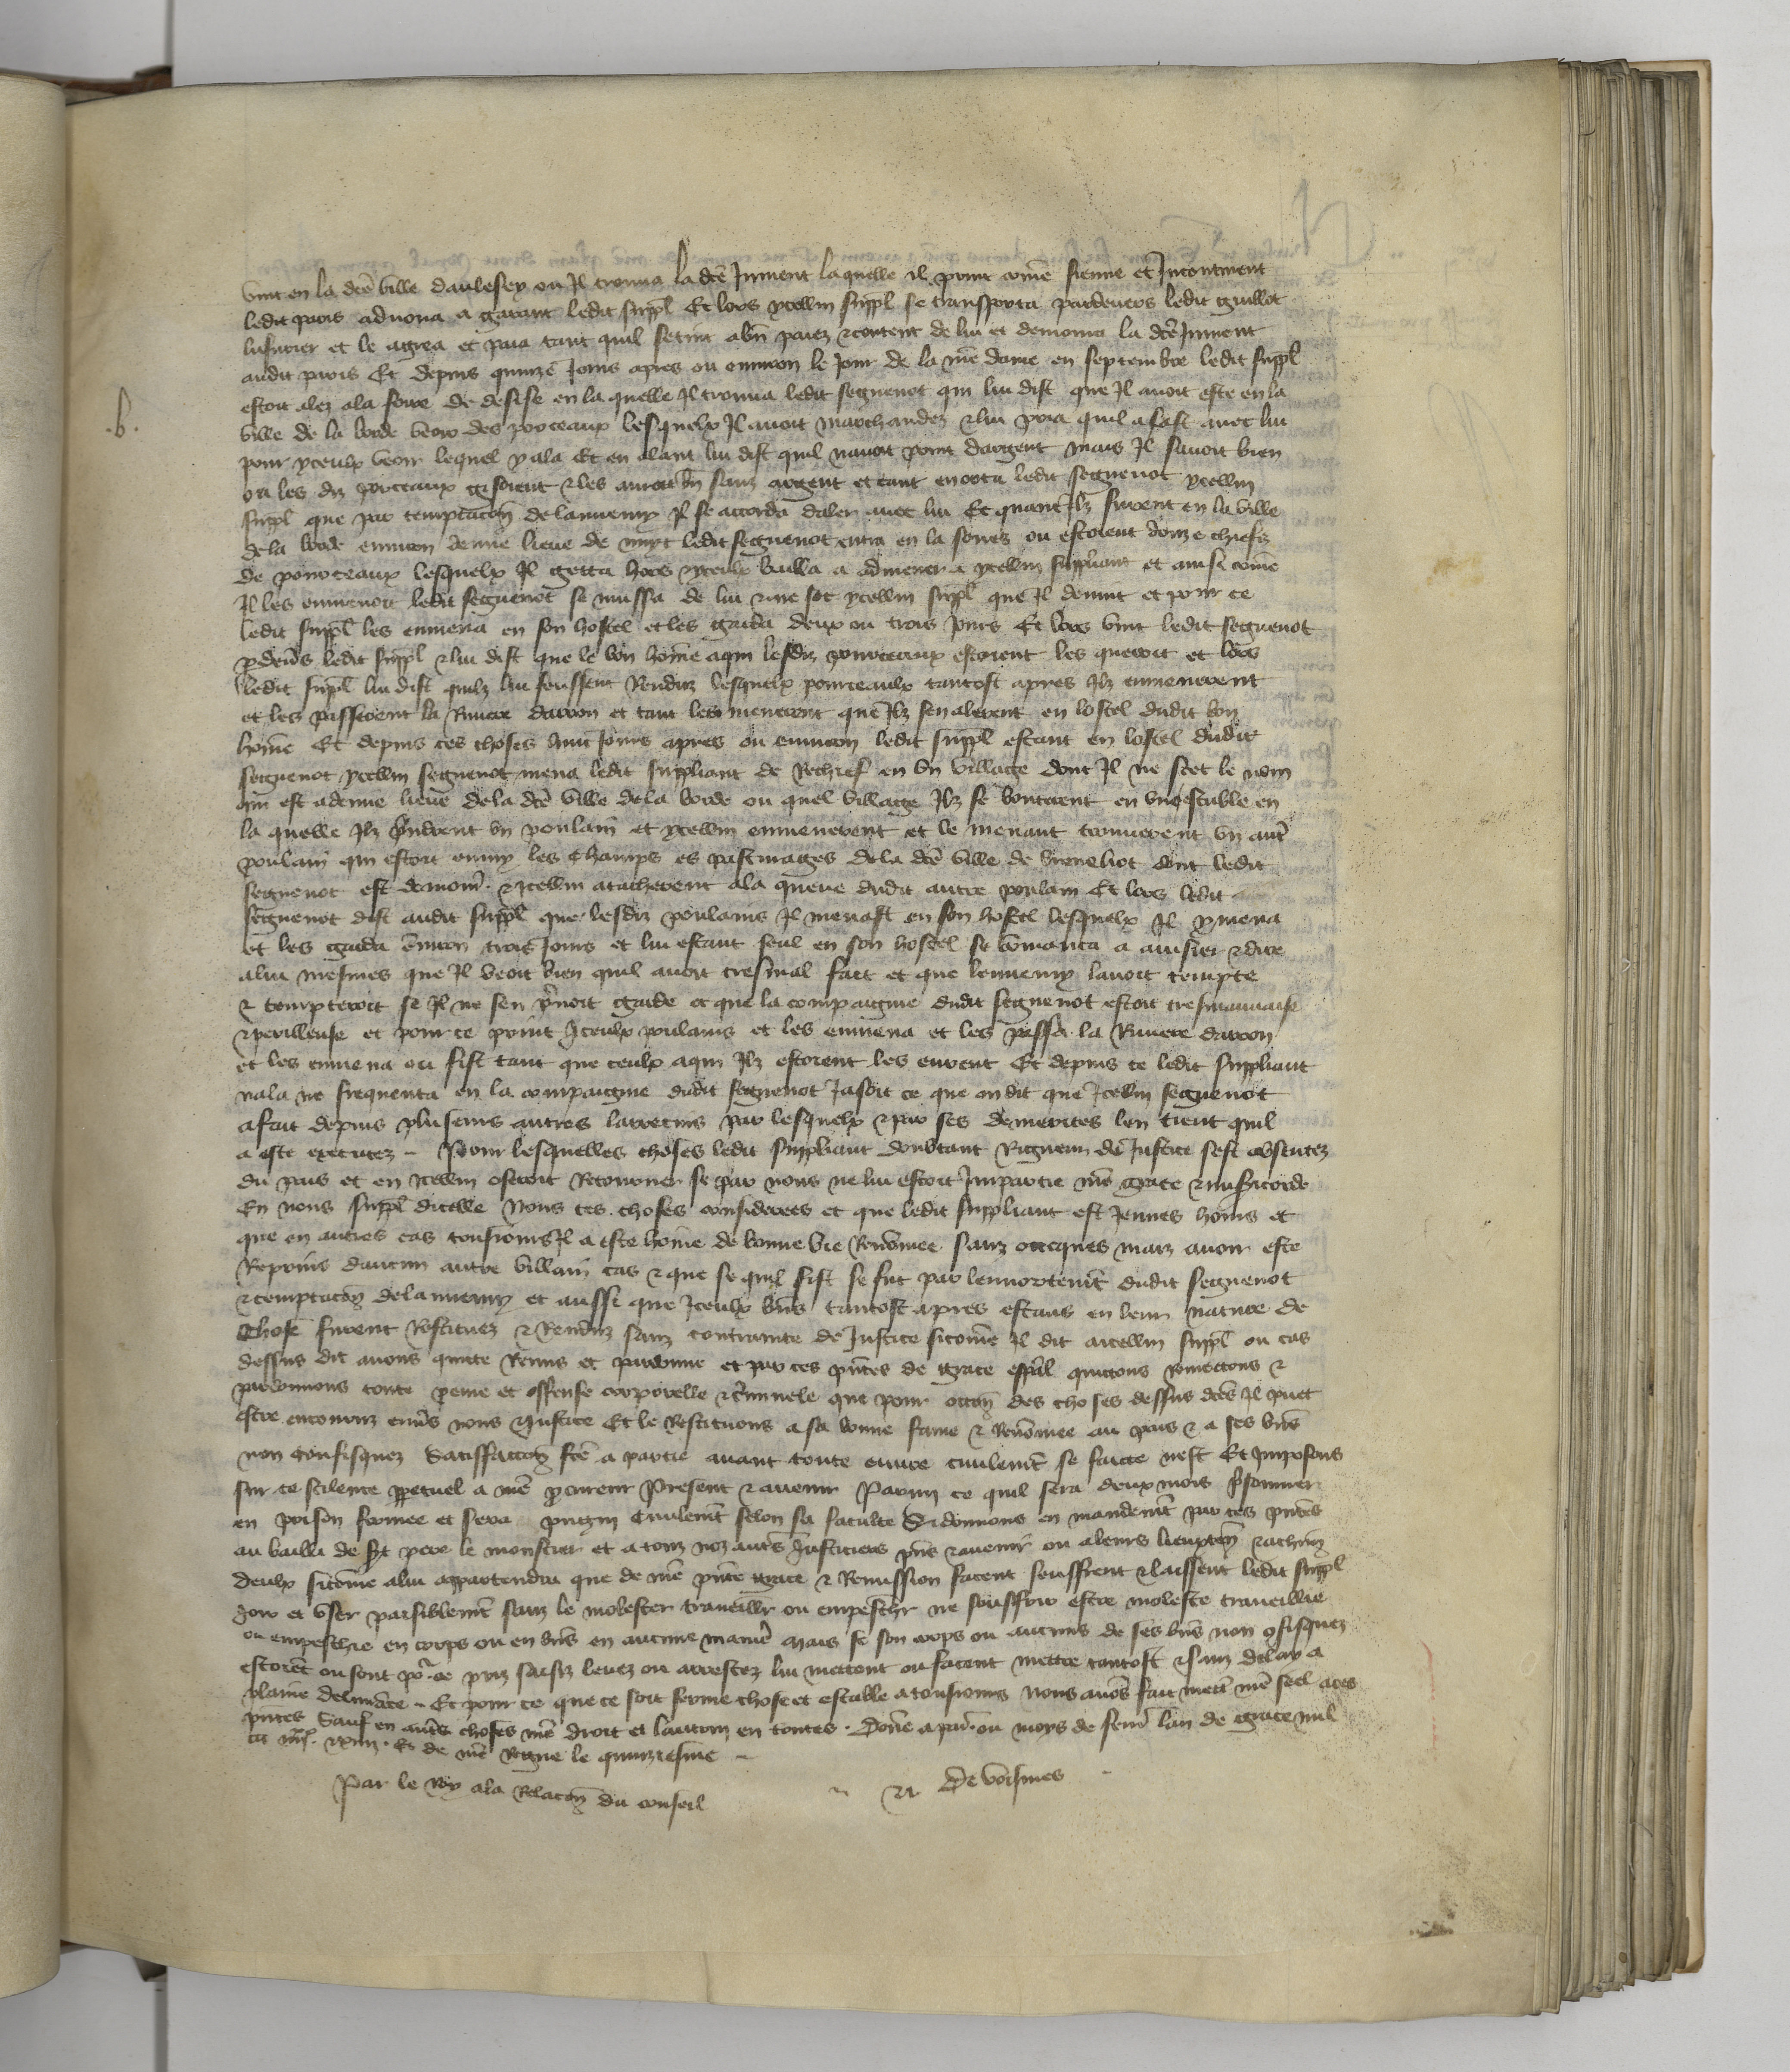 vint en la dcē ville daulesey ou Il trouua la dcē Jument laquelle il print comē sienne et Incontinent
ledit prois aduoua a garant ledit suppl Et lors ycellui suppl se transporta pardeuers ledit guillot
lusurier et le agrea et paia tant quil se tint a bn̄ paiez & content de lui et demoura la dcē Jument
audit prois Et depuis quinze Jours apres ou enuiron le Jour de la nr̄e dame en septembre ledit suppl
estoit alez ala foire de desise en la quelle Il trouua ledit seguenot qui lui dist que Il auoit este en la
ville de la borde veoir des porceaux lesquelx Il auoit marchandez & lui pria quil alast auec lui
pour yceulx veoir lequel y ala Et en alant lui dist quil nauoit point dargent mais Il sauoit bien
ou les diz porceaux gisoient & les auroit bn̄ sanz argent et tant enorta ledit seguenot ycellui
suppl que par temptacōn de lannemy Il se accorda daler auec lui Et quant Ilz furent en la ville
de la borde enuiron demie lieue de nuyt ledit seguenot entra en la soues ou estoient douze chiefz
de pourceaux lesquelx Il getta hors & yceulx bailla a admener a ycellui suppliant et ainsi comē
Il les enmenoit ledit seguenot se mussa de lui & ne sot ycellui suppl que Il deuint et pour ce
ledit suppl les enmena en son hostel et les garda deux ou trois Jours Et lors vint ledit seguenot
p deūs ledit suppl & lui dist que le bon home aqui lesdiz pourceaux estoient les queroit et lors
ledit suppl lui dist quilz lui feussent Renduz lesquelx pourceaulx tantost apres Ilz enmenerent
et les passerent la Riuiere darron et tant les menerent que Ilz sen alerent en lostel dudit bon
home Et depuis ces choses huit Jours apres ou enuiron ledit suppl estant en lostel dudit
seguenot ycellui seguenot mena ledit suppliant de Rechief en vn village dont Il ne scet le nom
qui est a demie lieue de la dcē ville de la borde ou quel village Ilz se bouterent en vne estable en
la quelle Ilz prindrent vn poulain et ycellui enmenerent et le menant trouuerent vn autr̄
poulain qui estoit enmy les champs es pasturages de la dcē ville de dont ledit
seguenot est & Icellui atacherent ala queue dudit autre poulain Et lors ledit
seguenot dist audit suppl que lesdiz poulains Il menast en son hostel lesquelx Il y mena
et les garda enuiron trois Jours et lui estant seul en son hostel se comanca a auiser & dire
alui mesmes que Il veoit bien quil auoit tresmal fait et que lennemy lauoit tempte
& tempteroit se Il ne sen prenoit garde et que la compaignie dudit seguenot estoit tresmauuaise
& perilleuse et pour ce print Iceulx poulains et les enmena et les passa la Riuiere darron
et les enmena ou fist tant que ceulx aqui Ilz estoient les eurent Et depuis ce ledit suppliant
nala ne frequenta en la compaignie dudit seguenot Jasoit ce que on dit que Icellui seguenot
a fait depuis pluseurs autres larrecins par lesquelx & par ses demerites len tient quil
a este executez ~ Pour lesquelles choses ledit suppliant doubtant Rigueur de Justice sest absentez
du pais et en Icellui oseroit Retourner se par nous ne lui estoit Impartie nr̄e grace & misericorde
En nous suppl dicelle Nous ces choses considerees et que ledit suppliant est Jeunes homs et
que en autres cas tousiours Il a este home de bonne vie Renōmee sanz oncques mais auoir este
Reprins daucun autre villain cas & que se quil fist se fut par lennortemt dudit seguenot
& temptacōn de lannemy et aussi que Iceulx bn̄s tantost apres estans en leur nature de
chose furent Restituez & Renduz sanz contrainte de Justice sicomē Il dit aicellui suppl ou cas
dessus dit auons quicte Remis et pardonne et par ces pn̄tes de grace esp̄al quictons Remectons &
pardonnons toute peine et offense corporelle & criminele que pour occōn des choses dessus dcēs Il puet
estre encouruz enūs nous & Justice Et le Restituons a sa bonne fame & Renōmee au pais & a ses bn̄s
non confisquez Satisfaccōn fcē a partie auant toute euure ciuilemt se faicte nest Et Imposons
sur ce scilence ppetuel a nr̄e procureur Present & auenir Parmi ce quil sera deux mois prisonnier
en prison fermee et sera pugni ciuilemt selon sa faculte Si donnons en mandemt par ces pn̄tes
au bailli de st pere le monstier et a touz noz autr̄s Justiciers pn̄s & auenir ou aleurs lieuxten̄ & achūn
deulx sicomme alui appartendra que de nr̄e pn̄te grace & Remission facent seuffrent & laissent ledit suppl
Joir et vser paisiblemt sanz le molester trauaillr ou empeschr ne souffrir estre moleste trauaillie
ou empeschie en corps ou en bn̄s en aucune manier̄ mais se son corps ou aucuns de ses bn̄s non cōfisquez
estoiēt ou sont pr ce prins saisiz leuez ou arrestez lui mettent ou facent mettre tantost & sanz delay a
plaine deliurāce ~ Et pour ce que ce soit ferme chose et estable a tousiours Nous auōs fait mett nr̄e seel aces
pn̄tes Sauf en autr̄s choses nr̄e droit et lautrui en toutes. Donne a par̄. ou moys de feur̄ lan de grace mil
ccc iiijxx. & xiiij. Et de nr̄e Regne le quinziesme ~
Par le Roy ala Relacōn du conseil ~ De voisines
.b.